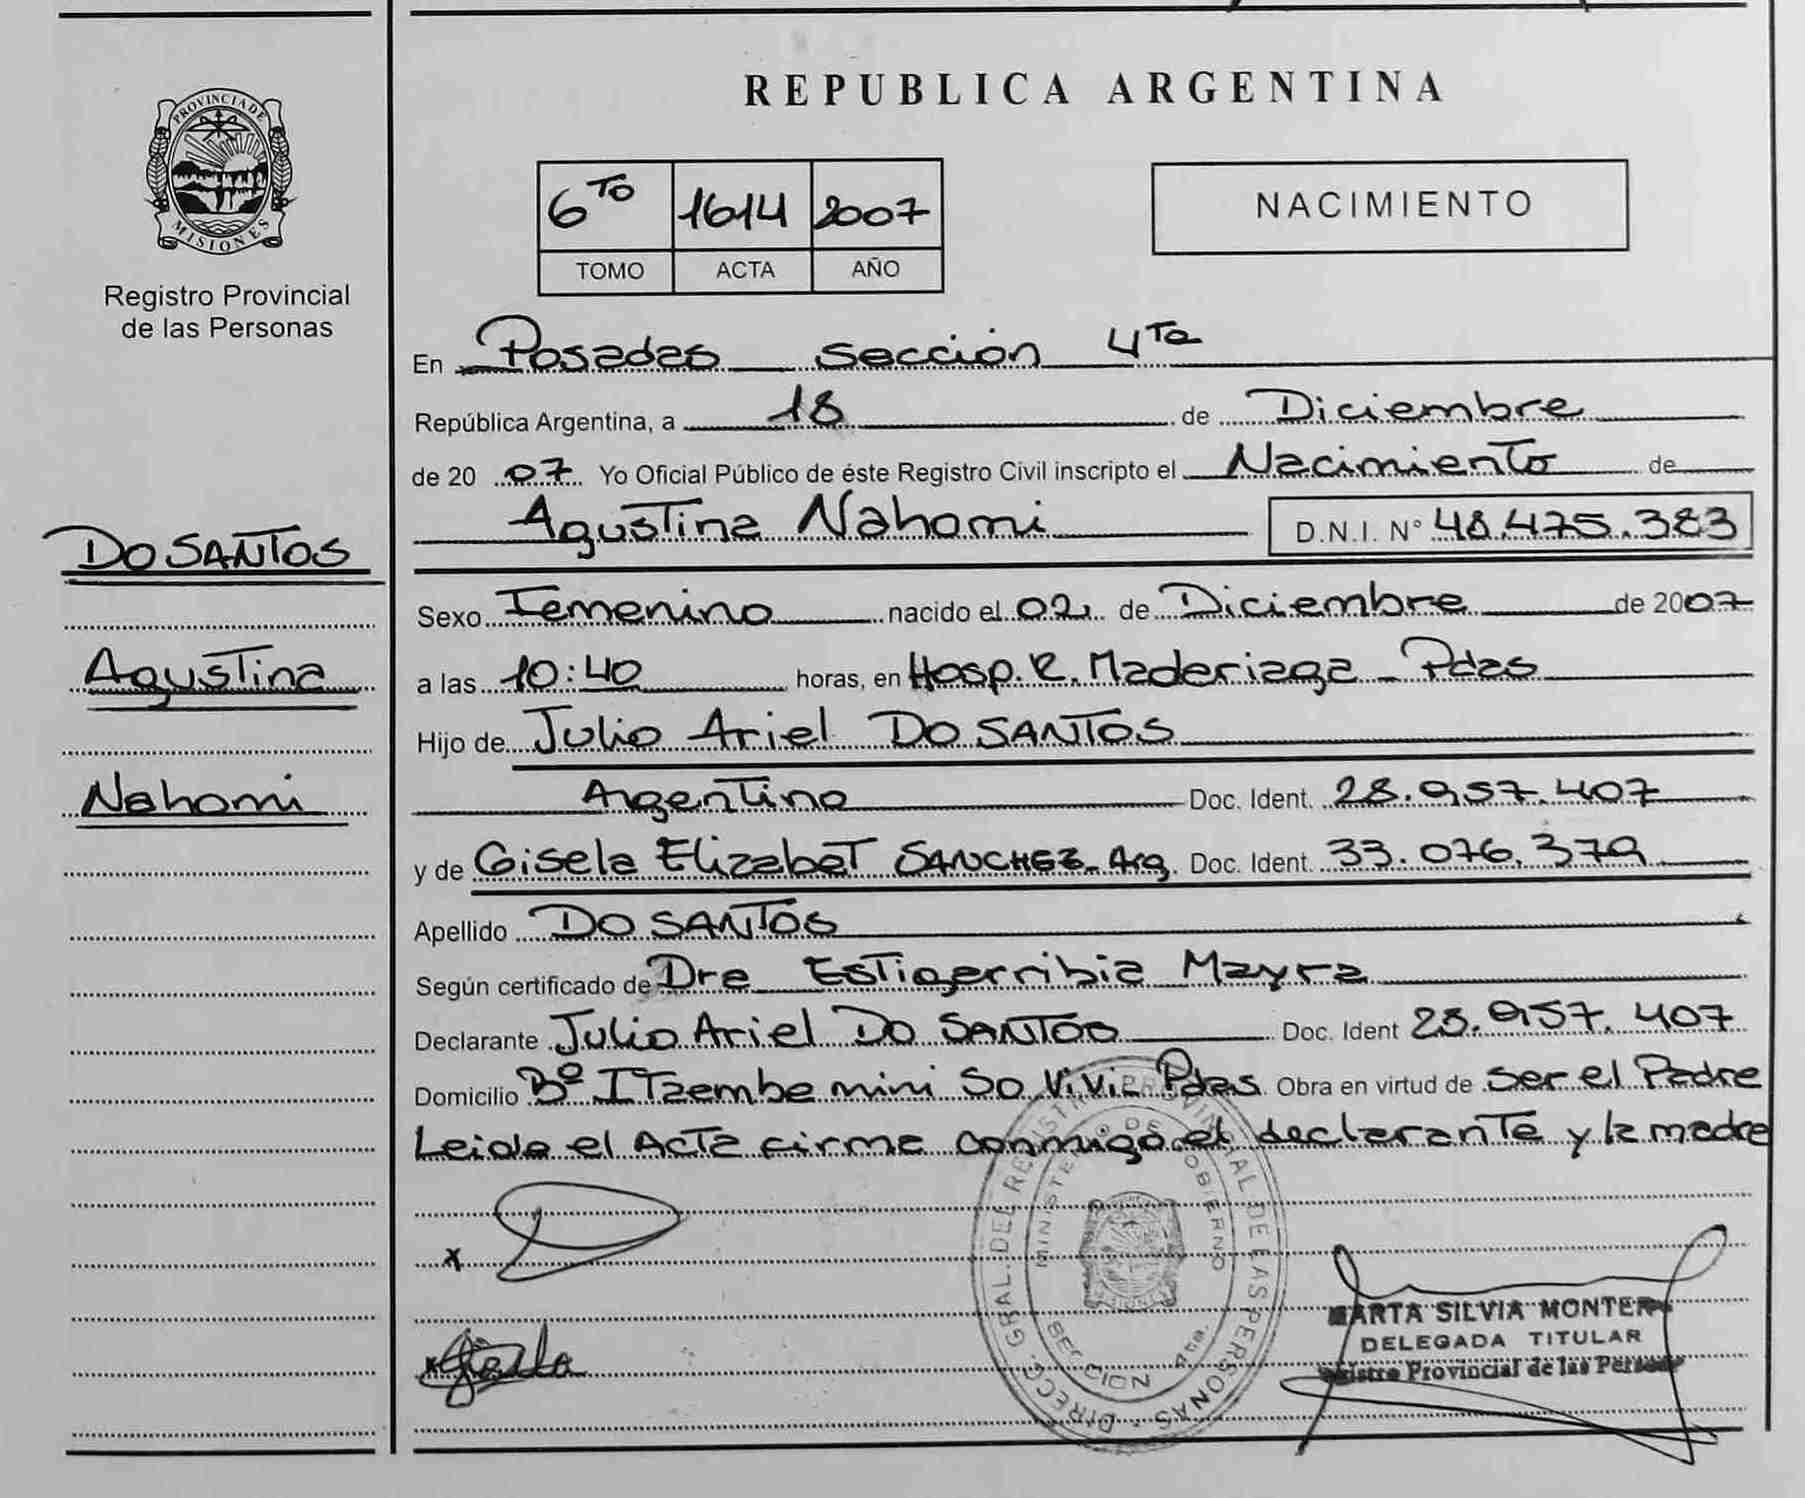 PROVINCIA DE
MISIONES
Registro Provincial
de las Personas
DO SANTOS
Agustina
Nahomi
REPUBLICA ARGENTINA
6to 1614 2007
TOMO ACTA AÑO
NACIMIENTO
En Posadas sección 4ta
República Argentina, a 18 de Diciembre
de 2007 Yo Oficial Público de éste Registro Civil inscripto el Nacimiento de
Agustina Nahomi D.N.I. N° 48.475.383
Sexo Femenino nacido el 02 de Diciembre de 2007
a las 10:40 horas, en Hosp. R. Maderiaga - Pdas
Hijo de Julio Ariel DO SANTOS
Argentino Doc. Ident. 28.957.407
y de Gisela Elizabet SANCHEZ - Arg. Doc. Ident. 33.076.379
Apellido DO SANTOS
Según certificado de Dra Estigarribia Mayra
Declarante Julio Ariel DO SANTOS Doc. Ident 28.957.407
Domicilio Bº Itaembe mini So Vivi Pdas. Obra en virtud de ser el Padre
Leida el Acta firma conmigo el declarante y la madre
x
x Gisela
DIRECC. GRAL. DEL REGISTRO PROVINCIAL DE LAS PERSONAS
MINISTERIO DE GOBIERNO
SECCION 4ta.
MARTA SILVIA MONTER
DELEGADA TITULAR
Registro Provincial de las Personas